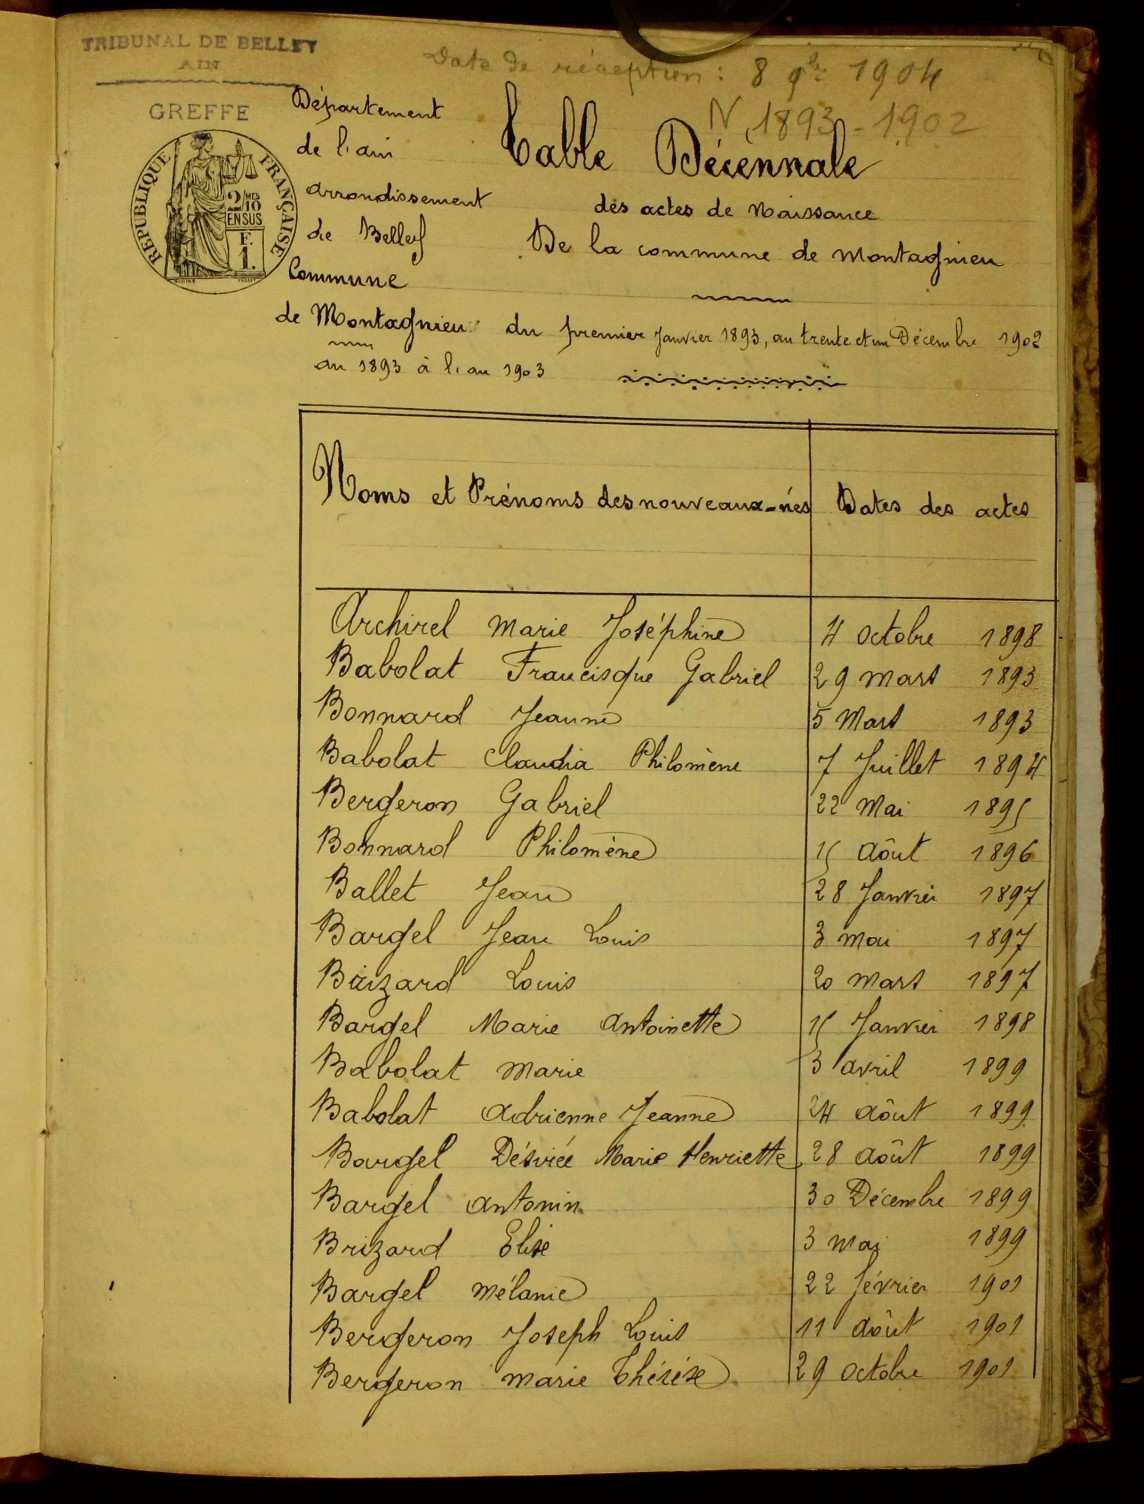 TRIBUNAL DE BELLEY
AIN
GREFFE
Date de réception : 8 9bre 1904
N 1893 - 1902
RÉPUBLIQUE FRANÇAISE
2/10 MES
EN SUS
F.
1.
Département
de l'ain
arrondissement
de Belley
Commune
de Montagnieu
an 1893 à l'an 1903
Table Décennale
des actes de Naissance
De la commune de Montagnieu
du premier Janvier 1893, au trente et un Décembre 1902
Noms et Prénoms des nouveaux-nés Dates des actes
Archirel Marie Joséphine 4 Octobre 1898
Babolat Francisque Gabriel 29 mars 1893
Bonnard Jeanne 5 Mars 1893
Babolat Claudia Philomène 7 Juillet 1894
Bergeron Gabriel 22 Mai 1895
Bonnard Philomène 15 Août 1896
Ballet Jean 28 Janvier 1897
Bargel Jean Louis 3 mai 1897
Brizard Louis 20 mars 1897
Bargel Marie Antoinette 15 Janvier 1898
Babolat Marie 3 avril 1899
Babolat Adrienne Jeanne 24 Août 1899
Bargel Désirée Marie Henriette 28 août 1899
Bargel Antonin 30 Décembre 1899
Brizard Elise 3 Mai 1899
Bargel Mélanie 22 février 1901
Bergeron Joseph Louis 11 août 1901
Bergeron Marie Thérèse 29 Octobre 1901